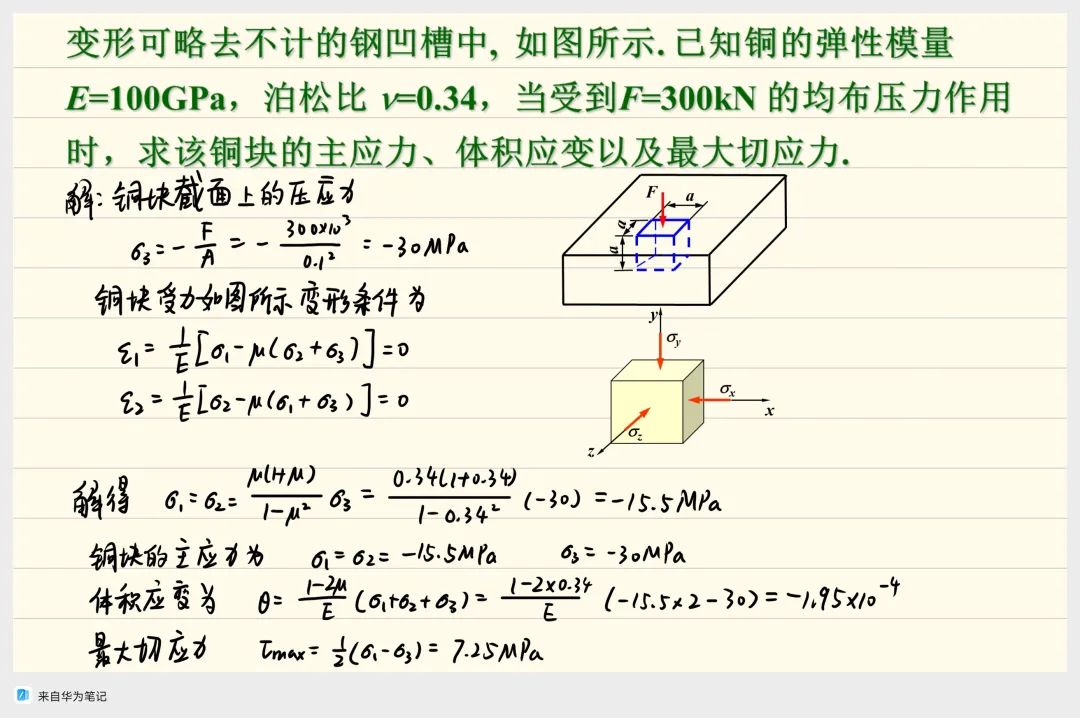 变形可略去不计的钢凹槽中, 如图所示. 已知铜的弹性模量
E=100GPa，泊松比 ν=0.34，当受到F=300kN 的均布压力作用
时，求该铜块的主应力、体积应变以及最大切应力.
解: 铜块截面上的压应力
σ3=-F/A=-300×10³/0.1²=-30MPa
铜块受力如图所示变形条件为
ε1=1/E[σ1-μ(σ2+σ3)]=0
ε2=1/E[σ2-μ(σ1+σ3)]=0
F
a
a
a
y
σy
σx
x
σz
z
解得 σ1=σ2=μ(1+μ)/1-μ² σ3=0.34(1+0.34)/1-0.34² (-30)=-15.5MPa
铜块的主应力为 σ1=σ2=-15.5MPa σ3=-30MPa
体积应变为 θ=1-2μ/E (σ1+σ2+σ3)=1-2×0.34/E (-15.5×2-30)=-1.95×10⁻⁴
最大切应力 τmax=1/2(σ1-σ3)=7.25MPa
来自华为笔记